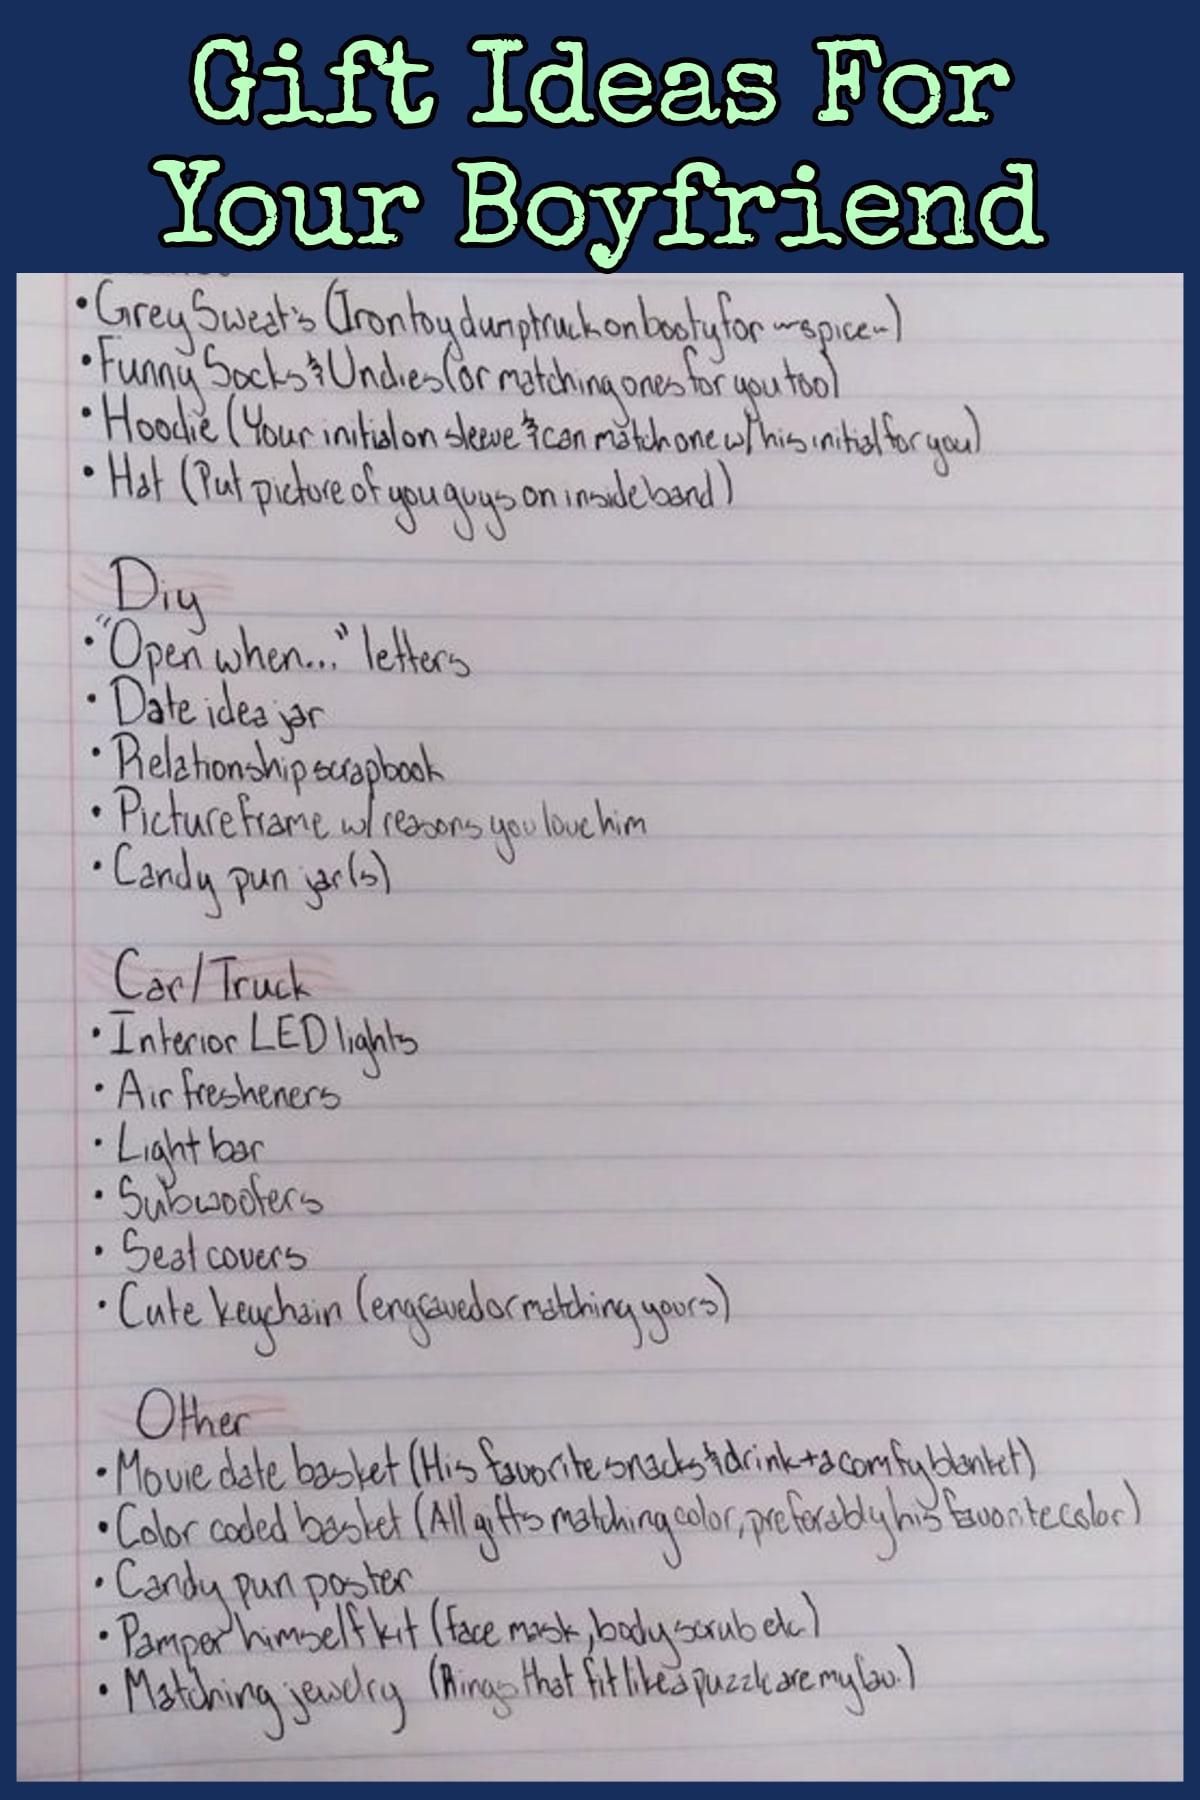 Gift Ideas For
Your Boyfriend
• Grey Sweat's (Iron toy dump truck on booty for ~spice~)
• Funny Socks & Undies (or matching ones for you too)
• Hoodie (Your initial on sleeve & can match one w/ his initial for you)
• Hat (Put picture of you guys on inside band)
Diy
• "Open when..." letters
• Date idea jar
• Relationship scrapbook
• Picture frame w/ reasons you love him
• Candy pun jar(s)
Car/Truck
• Interior LED lights
• Air fresheners
• Light bar
• Subwoofers
• Seat covers
• Cute keychain (engraved or matching yours)
Other
• Movie date basket (His favorite snacks & drink + a comfy blanket)
• Color coded basket (All gifts matching color, preferably his favorite color)
• Candy pun poster
• Pamper himself kit (face mask, body scrub etc.)
• Matching jewelry (Rings that fit like a puzzle are my fav.)